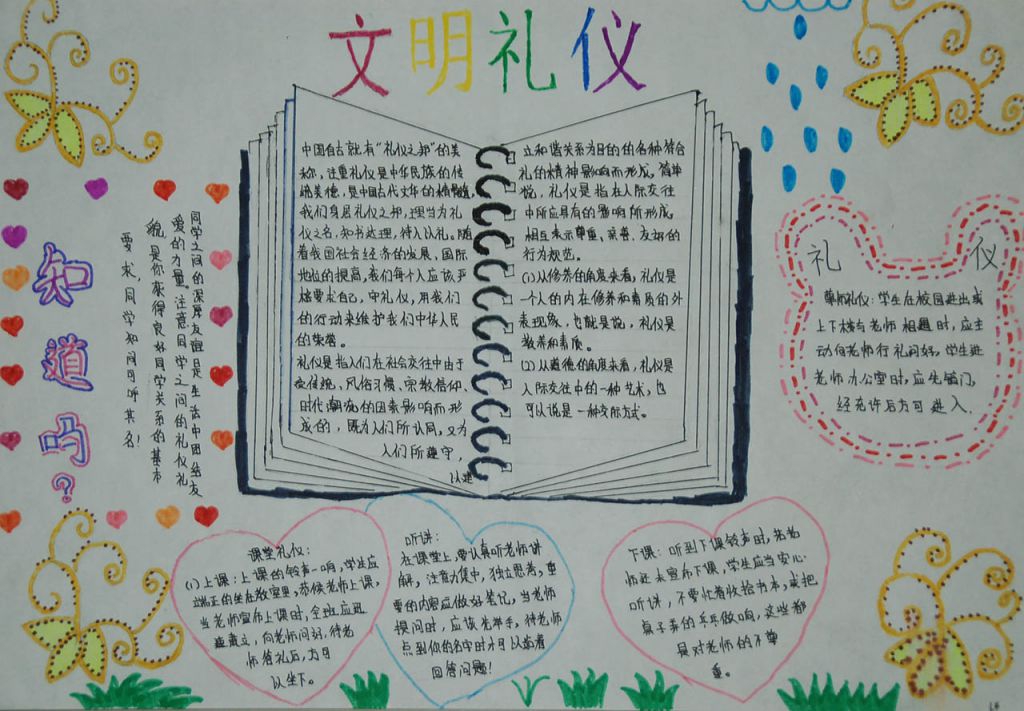 文明礼仪
中国自古就有“礼仪之邦”的美
称，注重礼仪是中华民族的传
统美德，是中国古代文年的精髓，
我们身居礼仪之邦，理当为礼
仪之名，知书达理，待人以礼。随
着我国社会经济的发展，国际
地位的提高，我们每个人应该严
格要求自己，守礼仪，用我们
的行动来维护我们中华人民
的荣誉。
礼仪是指人们在社会交往中由于
受传统，风俗习惯、宗教信仰、
时代潮流的因素影响而形
成的，既为人们所认同，又为
人们所遵守，
以建
立和谐关系为目的的各种符合
礼的精神影响而形成，简单
说，礼仪是指在人际交往
中所应具有的影响所形成
相互表示尊重、亲善、友好的
行为规范。
(1)从修养的角度来看，礼仪是
一个人的内在修养和素质的外
表现象，也就是说，礼仪是
教养和素质。
(2)从道德的角度来看，礼仪是
人际交往中的一种艺术，也
可以说是一种交际方式。
知道吗？
同学之间的深厚友谊是生活中团结友
爱的力量。注意同学之间的礼仪礼
貌是你获得良好同学关系的基本
要求，同学知间可听其名！
礼仪
尊师礼仪：学生在校园进出或
上下楼与老师相遇时，应主
动向老师行礼问好，学生进
老师办公室时，应先敲门，
经允许后方可进入.
课堂礼仪：
(1)上课：上课的铃声一响，学生应
端正的坐在教室里，恭候老师上课，
当老师宣布上课时，全班应迅
速肃立，向老师问好，待老
师答礼后，方可
以坐下。
听讲：
在课堂上，要认真听老师讲
解，注意力集中，独立思考，重
要的内容应做好笔记，当老师
提问时，应该先举手，待老师
点到你的名字时方可以站着
回答问题！
下课：听到下课铃声时，若老
师还未宣布下课，学生应当安心
听讲，不要忙着收拾书本，或把
桌子弄的乒乓做响，这些都
是对老师的不尊
重。